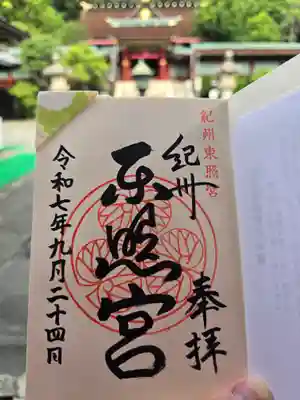 紀州東照宮
奉拝
紀州
东照宮
令和七年九月二十四日